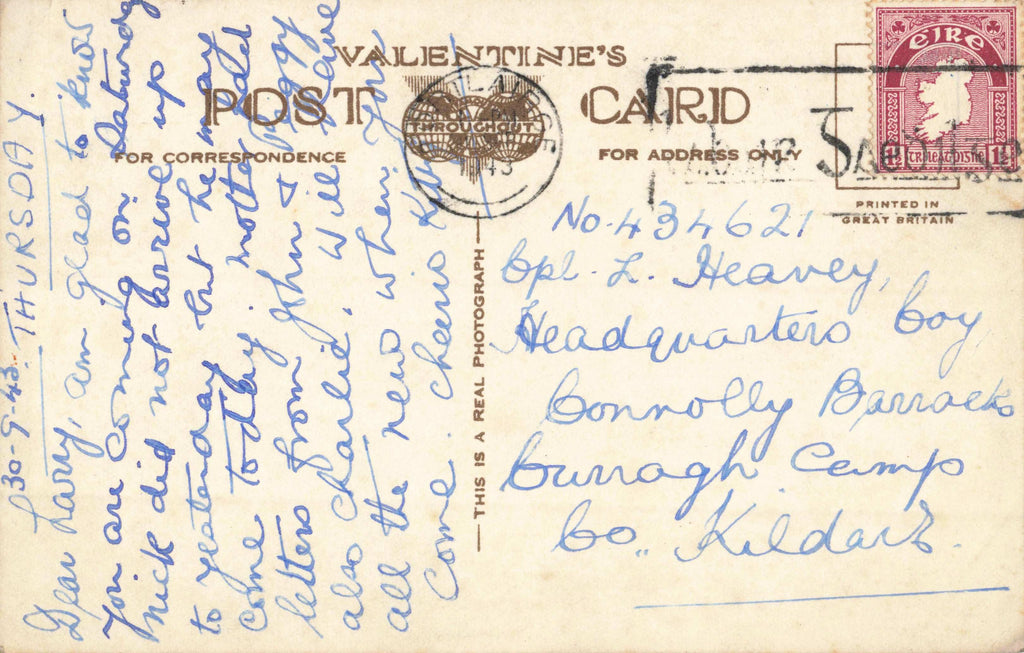 VALENTINE'S
POST CARD
THROUGHOUT
FOR CORRESPONDENCE
FOR ADDRESS ONLY
PRINTED IN
GREAT BRITAIN
THIS IS A REAL PHOTOGRAPH
éire
30-9-43. THURSDAY.
Dear Larry, am glad to know
you are coming on Saturday
Mick did not arrive up
to yesterday but he may
come today. mother had
letters from John & Peggy
also Charlie. will leave
all the news when you
come. cheerio
No. 434621
Cpl. L. Heavey,
Headquarters Coy,
Connolly Barracks
Curragh Camp
Co. Kildare.